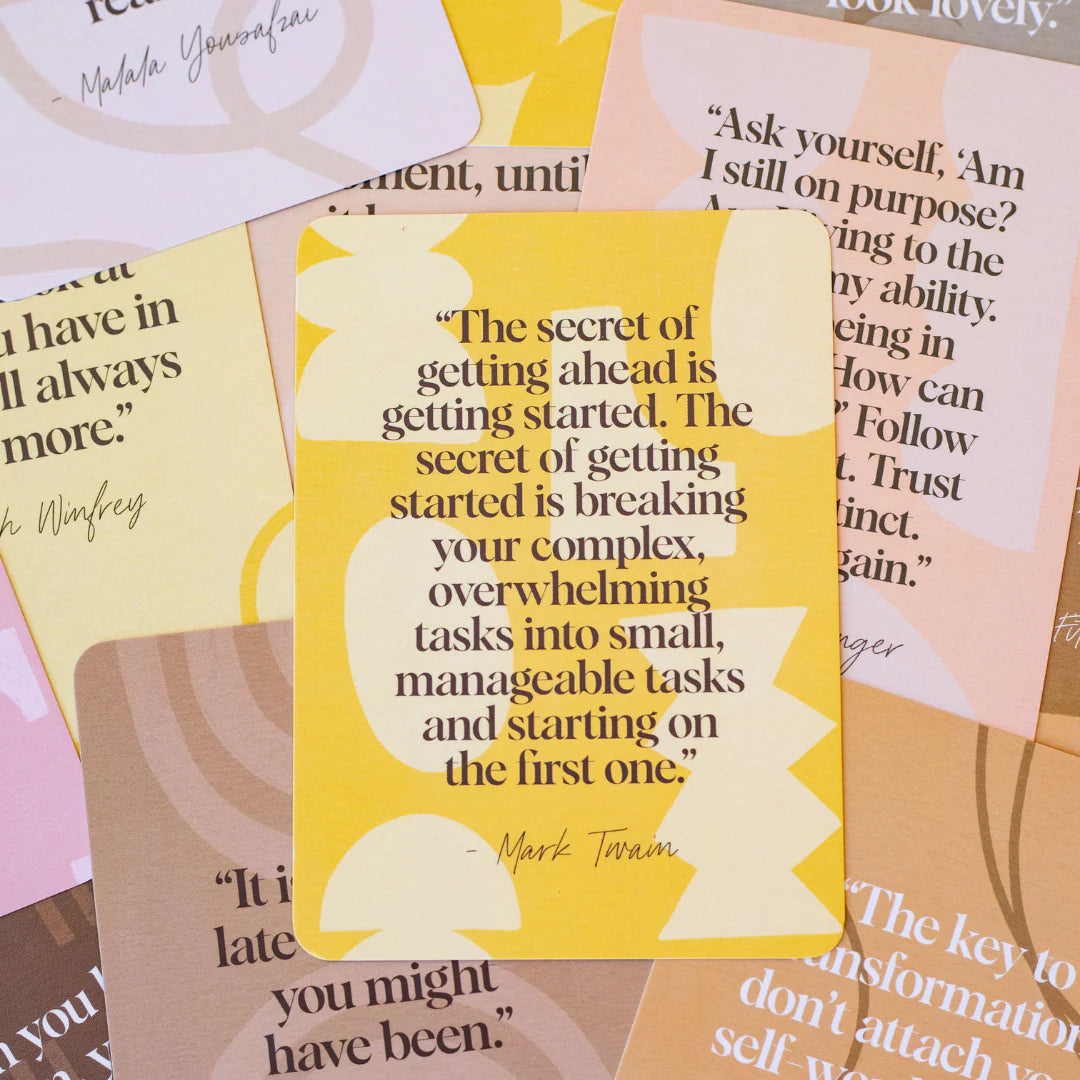 - Malala Yousafzai
look lovely.”
until
“Ask yourself, ‘Am
I still on purpose?
to the
ability.
in
How can
Follow
Trust
have in
always
more.”
Winfrey
“The secret of
getting ahead is
getting started. The
secret of getting
started is breaking
your complex,
overwhelming
tasks into small,
manageable tasks
and starting on
the first one.”
- Mark Twain
“It
late
you might
have been.”
“The key to
don’t attach
you